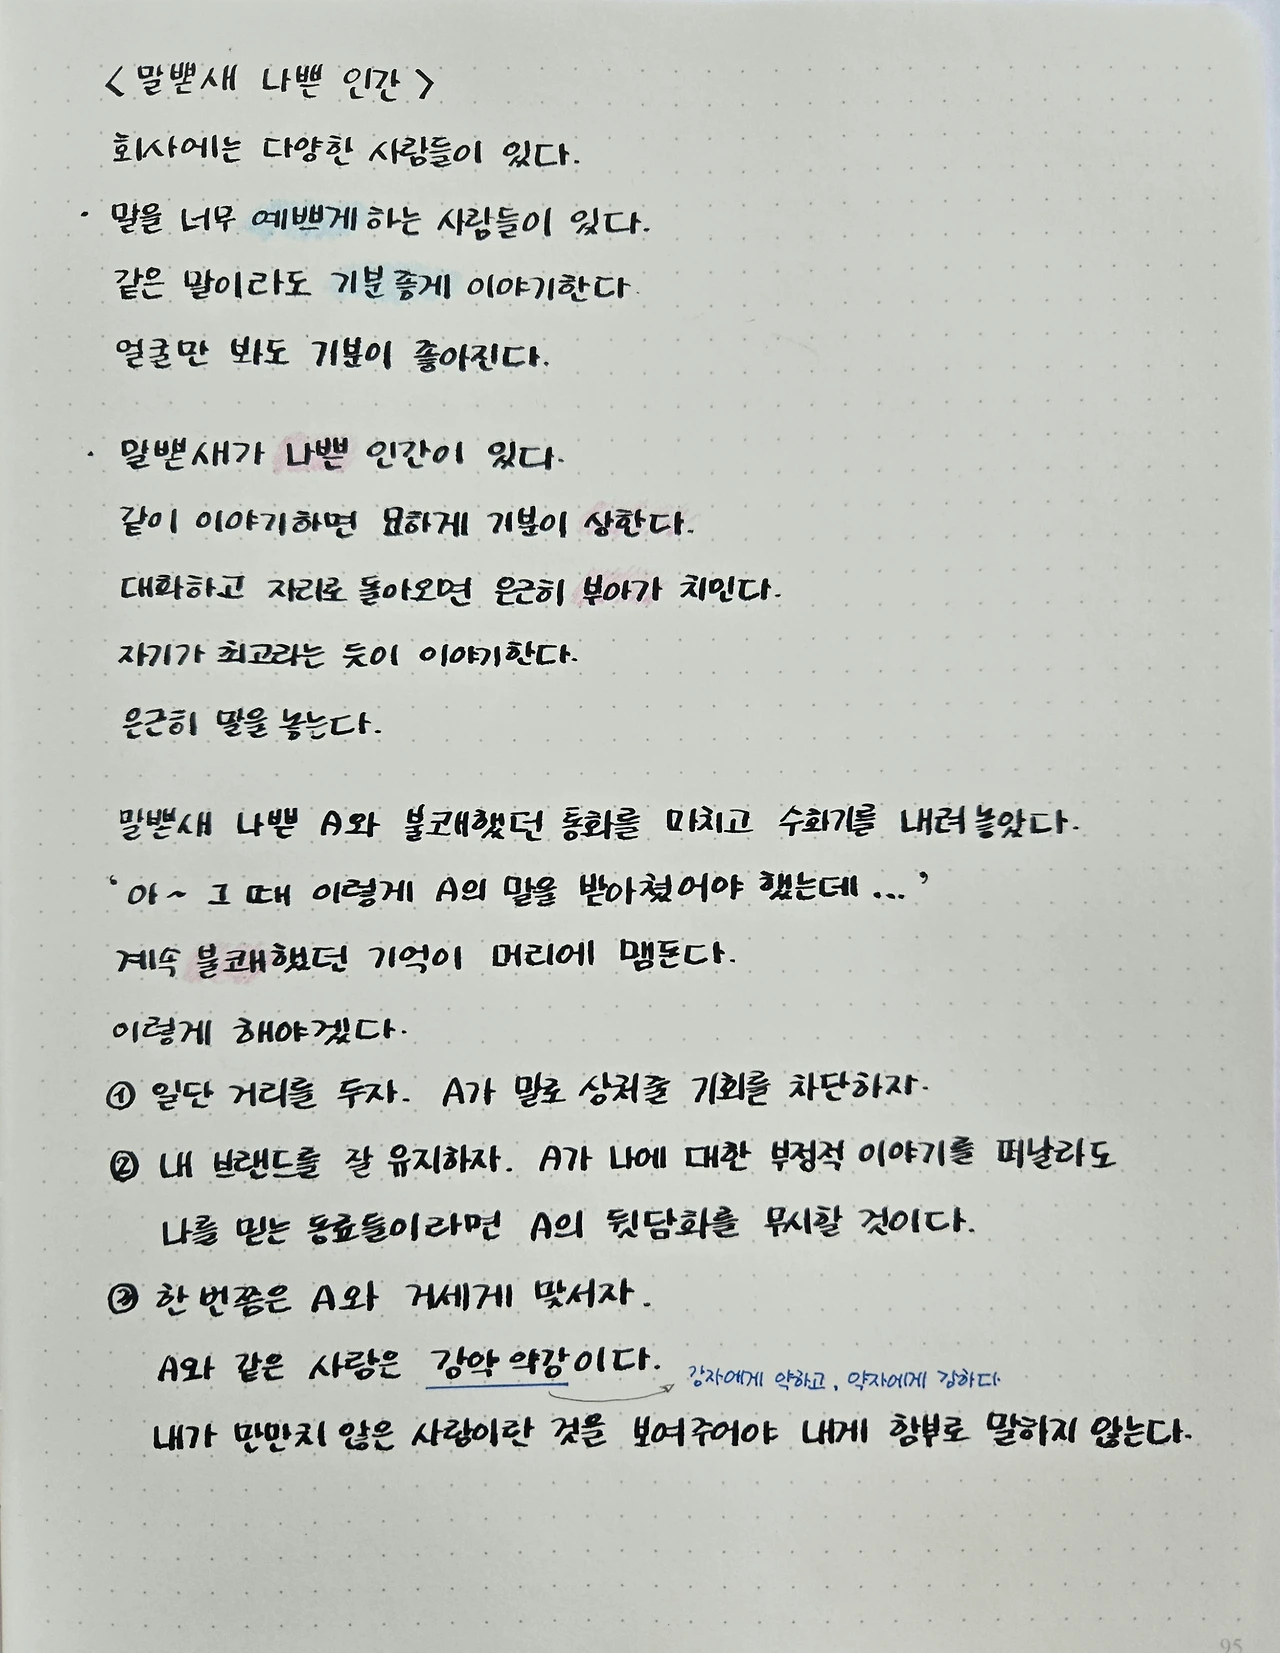 <말뽄새 나쁜 인간>
회사에는 다양한 사람들이 있다.
· 말을 너무 예쁘게 하는 사람들이 있다.
같은 말이라도 기분 좋게 이야기한다.
얼굴만 봐도 기분이 좋아진다.
· 말뽄새가 나쁜 인간이 있다.
같이 이야기하면 묘하게 기분이 상한다.
대화하고 자리로 돌아오면 은근히 부아가 치민다.
자기가 최고라는 듯이 이야기한다.
은근히 말을 놓는다.
말뽄새 나쁜 A와 불쾌했던 통화를 마치고 수화기를 내려놓았다.
‘아~ 그 때 이렇게 A의 말을 받아쳤어야 했는데...’
계속 불쾌했던 기억이 머리에 맴돈다.
이렇게 해야겠다.
① 일단 거리를 두자. A가 말로 상처줄 기회를 차단하자.
② 내 브랜드를 잘 유지하자. A가 나에 대한 부정적 이야기를 떠날라도
나를 믿는 동료들이라면 A의 뒷담화를 무시할 것이다.
③ 한 번쯤은 A와 거세게 맞서자.
A와 같은 사람은 강약 약강이다.
강자에게 약하고, 약자에게 강하다
내가 만만치 않은 사람이란 것을 보여주어야 내게 함부로 말하지 않는다.
95